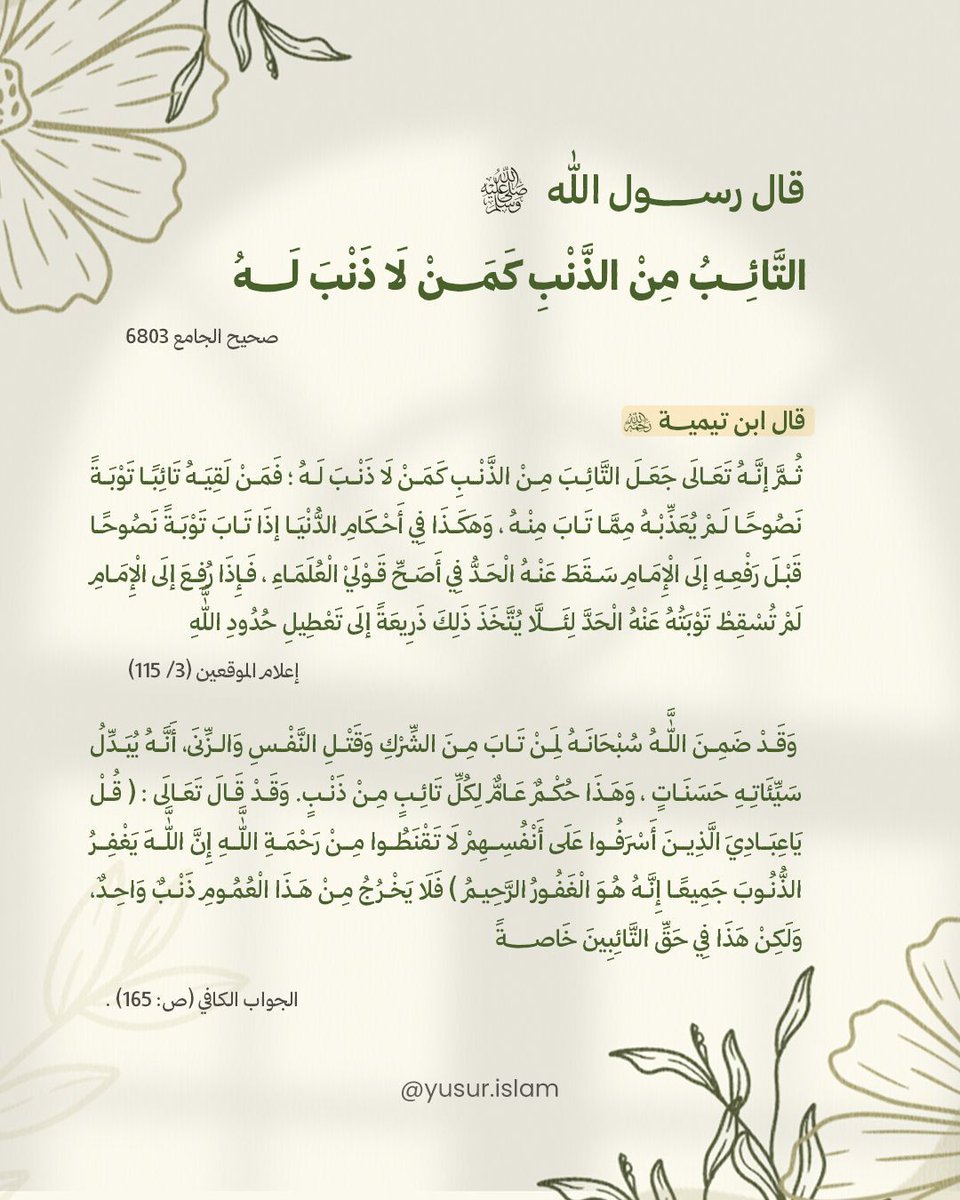 قال رســـول الله ﷺ
التَّائِــبُ مِنْ الذَّنْبِ كَمَــنْ لَا ذَنْبَ لَــهُ
صحيح الجامع 6803
قال ابن تيميــة رحمه الله
ثُـمَّ إنَّـهُ تَعَـالَى جَعَـلَ التَّائِـبَ مِـنْ الذَّنْـبِ كَمَـنْ لَا ذَنْـبَ لَـهُ ؛ فَمَـنْ لَقِيَـهُ تَائِبًـا تَوْبَـةً
نَصُوحًـا لَـمْ يُعَذِّبْـهُ مِمَّـا تَـابَ مِنْـهُ ، وَهَكَـذَا فِي أَحْـكَامِ الدُّنْيَـا إذَا تَـابَ تَوْبَـةً نَصُوحًـا
قَبْـلَ رَفْعِـهِ إلَى الْإِمَـامِ سَـقَطَ عَنْـهُ الْحَـدُّ فِي أَصَـحِّ قَـوْلَيْ الْعُلَمَـاءِ ، فَـإِذَا رُفِـعَ إلَى الْإِمَـامِ
لَمْ تُسْقِطْ تَوْبَتُهُ عَنْهُ الْحَدَّ لِئَــلَّا يُتَّخَذَ ذَلِكَ ذَرِيعَةً إلَى تَعْطِيلِ حُدُودِ اللَّهِ
إعلام الموقعين (3/ 115)
وَقَـدْ ضَمِـنَ اللَّـهُ سُبْحَانَـهُ لِمَـنْ تَـابَ مِـنَ الشِّرْكِ وَقَتْـلِ النَّفْـسِ وَالـزِّنَى، أَنَّـهُ يُبَـدِّلُ
سَيِّئَاتِـهِ حَسَنَـاتٍ ، وَهَـذَا حُكْـمٌ عَـامٌّ لِكُلِّ تَائِـبٍ مِـنْ ذَنْـبٍ. وَقَـدْ قَـالَ تَعَـالَى : ( قُـلْ
يَاعِبَـادِيَ الَّذِيـنَ أَسْرَفُـوا عَلَى أَنْفُسِـهِمْ لَا تَقْنَطُـوا مِـنْ رَحْمَـةِ اللَّـهِ إِنَّ اللَّـهَ يَغْفِـرُ
الذُّنُـوبَ جَمِيعًـا إِنَّـهُ هُـوَ الْغَفُـورُ الرَّحِيـمُ ) فَلَا يَخْـرُجُ مِـنْ هَـذَا الْعُمُـومِ ذَنْـبٌ وَاحِـدٌ،
وَلَكِنْ هَذَا فِي حَقِّ التَّائِبِينَ خَاصــةً
الجواب الكافي (ص: 165) .
@yusur.islam